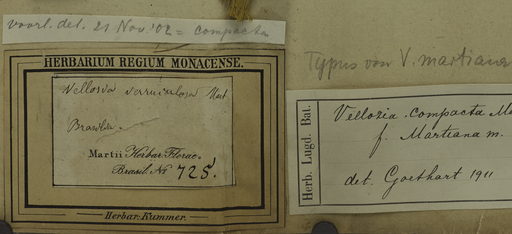 voorl. det. 21 Nov. '02 = compacta
HERBARIUM REGIUM MONACENSE.
Vellosia verruculosa Mart
Brasilia.
Martii Herbar. Florae.
Brasil. No 725.
Herbar. Kummer.
Typus von V. martiana
Herb. Lugd. Bat.
Vellozia compacta Ma
f. Martiana m.
det. Goethart 1911